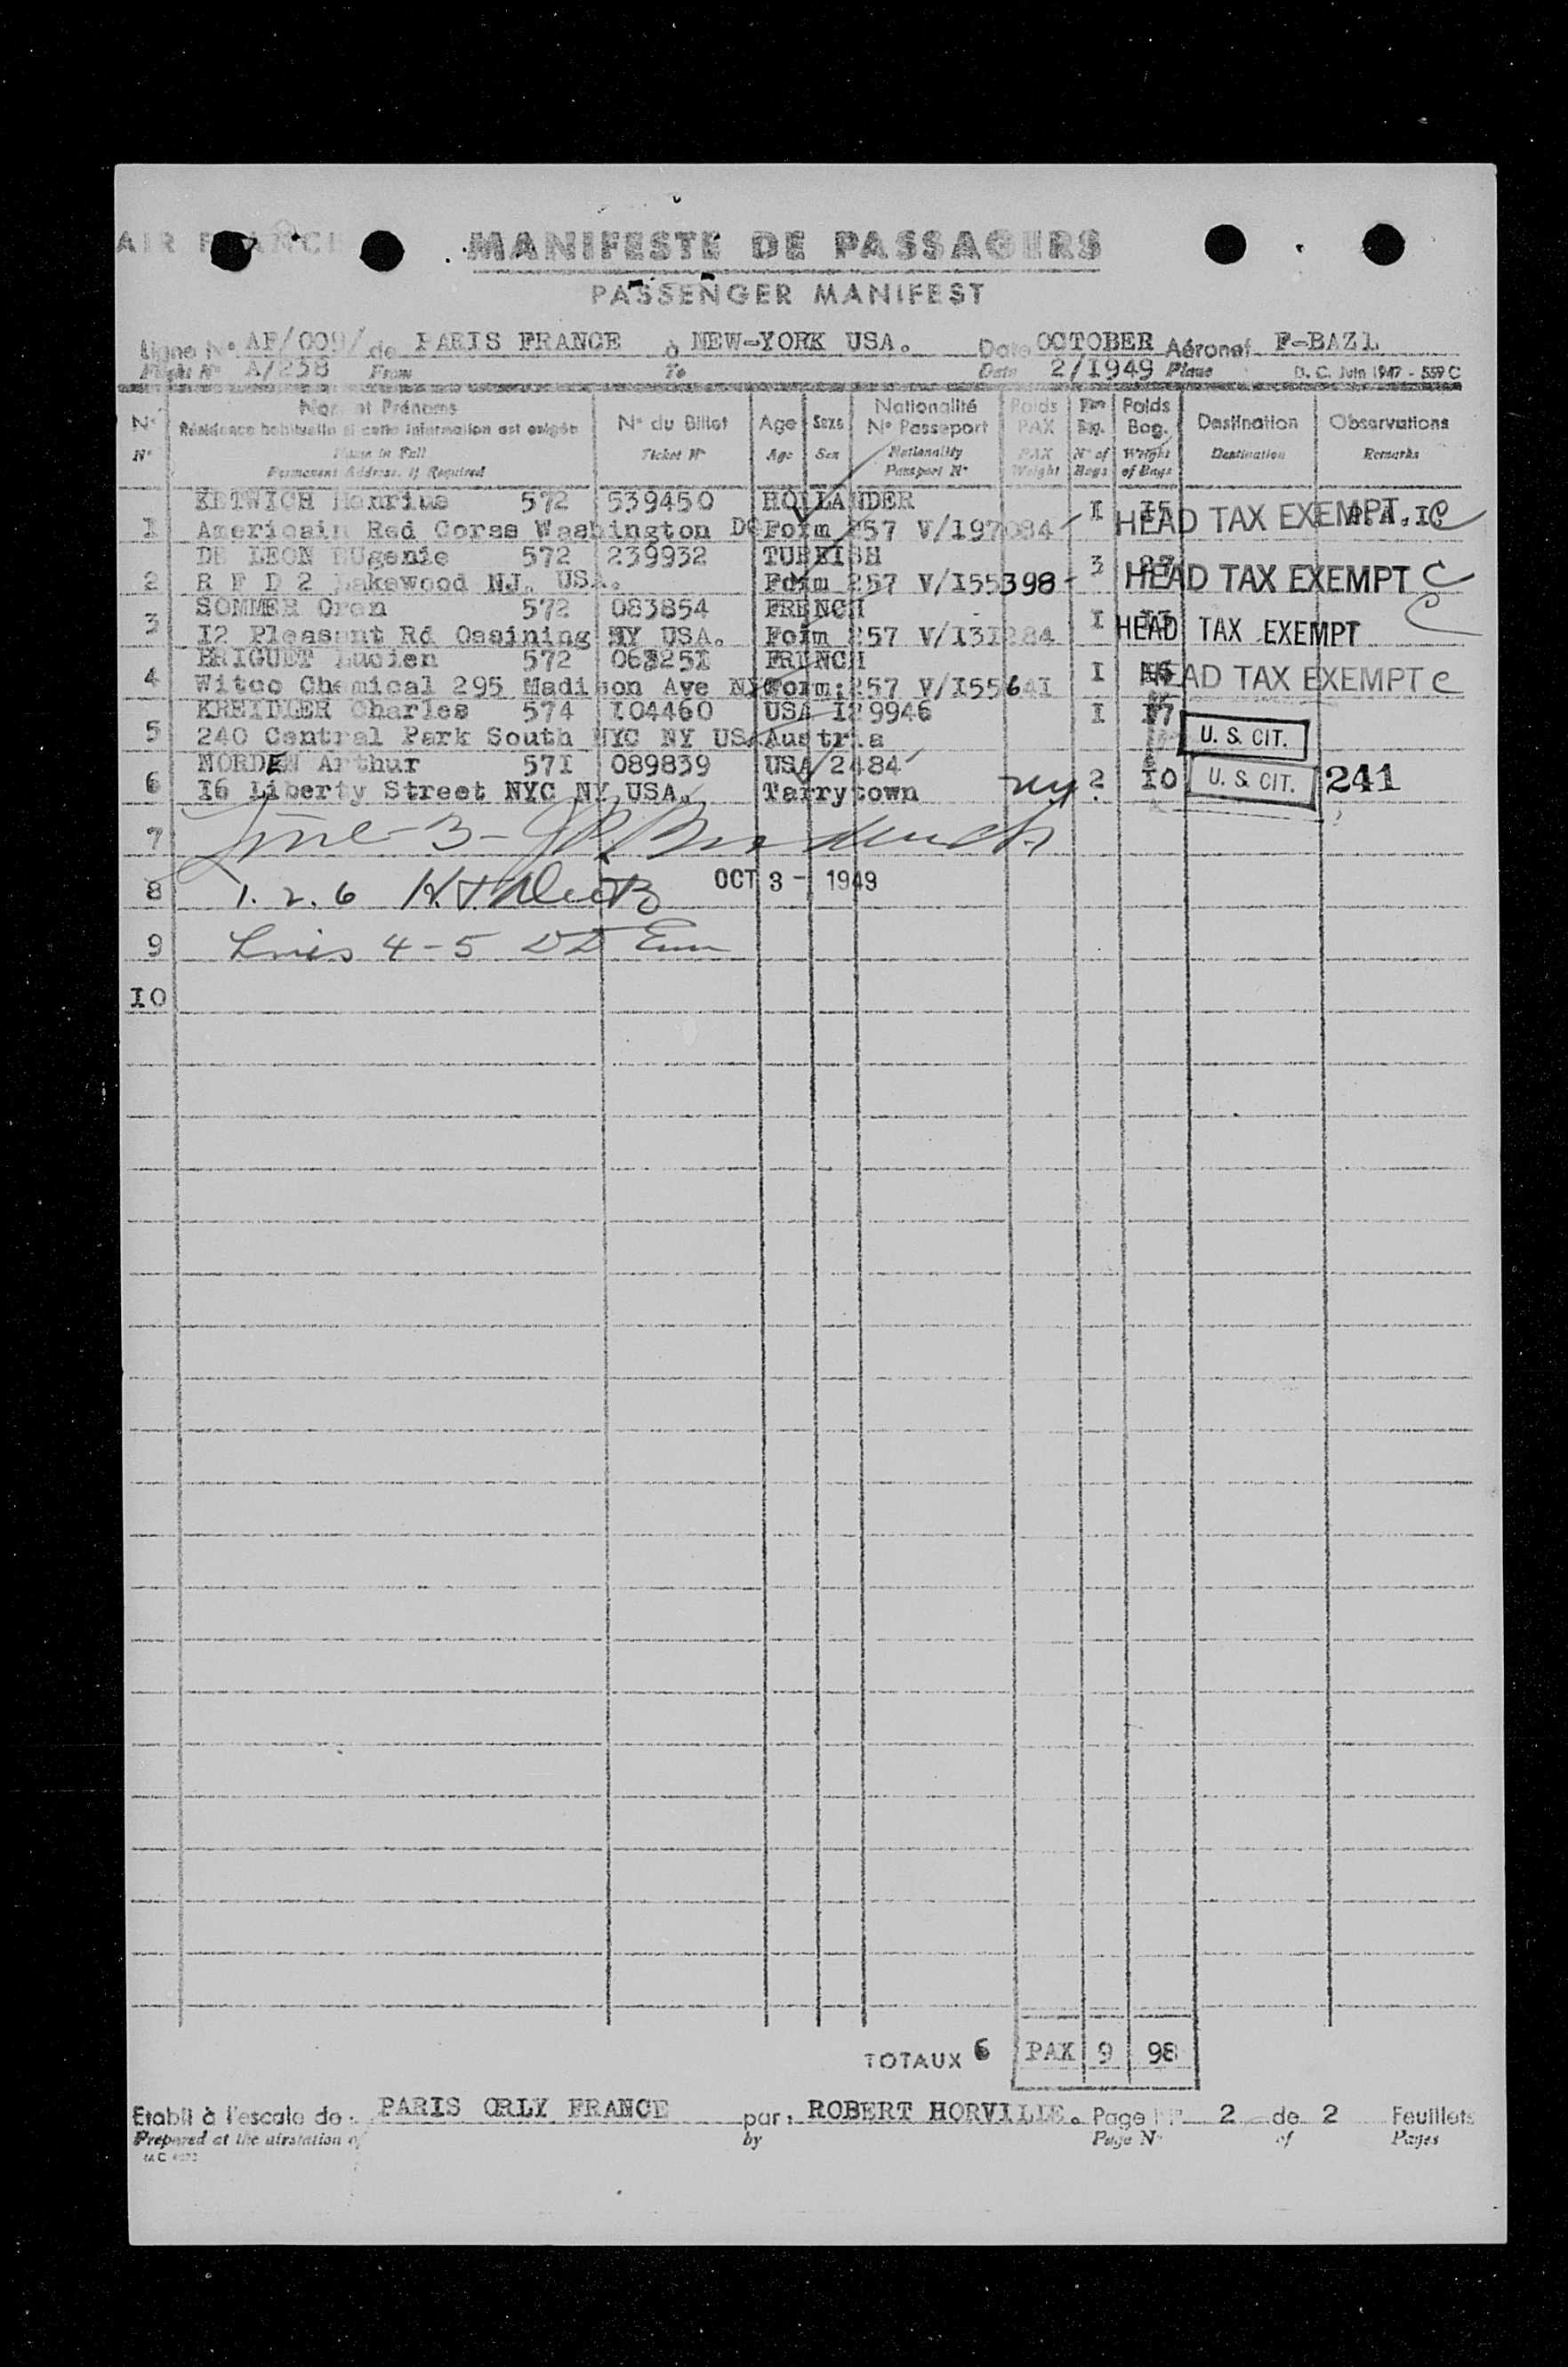 AIR FRANCE
MANIFESTE DE PASSAGERS
PASSENGER MANIFEST
Ligne N° AF/009/ de PARIS FRANCE à NEW-YORK USA. Date OCTOBER Aéronef F-BAZL
Flight N° A/258 From To Date 2/1949 Plane D. C. Juin 1947 - 559 C
N° Nom et Prénoms N° du Billet Age Sexe Nationalité N° Passeport Poids PAX Bag. Poids Bag. Destination Observations
Résidence habituelle si cette information est exigée
N° Name in Full Ticket N° Age Sex Nationality Passport N° PAX Weight N° of Bags Weight of Bags Destination Remarks
Permanent Address, if Required
KETWICH Henrius 572 539450 HOLLANDER I I5
1 Americain Red Corss Washington DC Form 257 V/197084 HEAD TAX EXEMPT C
DE LEON EUgenie 572 239932 TURKISH 3
2 R F D 2 Lakewood NJ. USA. Form 257 V/I55398 HEAD TAX EXEMPT C
SOMMER Oron 572 083854 FRENCH I
3 I2 Pleasant Rd Ossining NY USA. Form 257 V/I3I284 HEAD TAX EXEMPT C
BRIGUET Lucien 572 063251 FRENCH I
4 Witco Chemical 295 Madison Ave NYC Form:257 V/I5564I HEAD TAX EXEMPT C
KREITLER Charles 574 I04460 USA I29946 I I7
5 240 Central Park South NYC NY USA Austria U. S. CIT.
NORDEN Arthur 57I 089839 USA 2484
6 I6 Liberty Street NYC NY USA. Tarrytown ny 2 IO U. S. CIT. 241
7 Line - 3 -
8 1. 2. 6 OCT 3 - 1949
9 Lines 4 - 5
IO
TOTAUX 6 PAX 9 98
Etabli à l'escale de : PARIS ORLY FRANCE par : ROBERT HORVILLE. Page N° 2 de 2 Feuillets
Prepared at the airstation of by Page N° of Pages